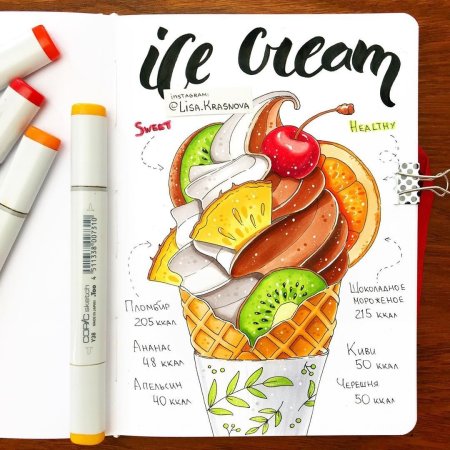 ice cream
INSTAGRAM:
@LISA.KRASNOVA
SWEET
HEALTHY
ПЛОМБИР
205 ККАЛ
АНАНАС
48 ККАЛ
АПЕЛЬСИН
40 ККАЛ
ШОКОЛАДНОЕ
МОРОЖЕНОЕ
215 ККАЛ
КИВИ
50 ККАЛ
ЧЕРЕШНЯ
50 ККАЛ
4 511338 007310
COPIC sketch
Y38